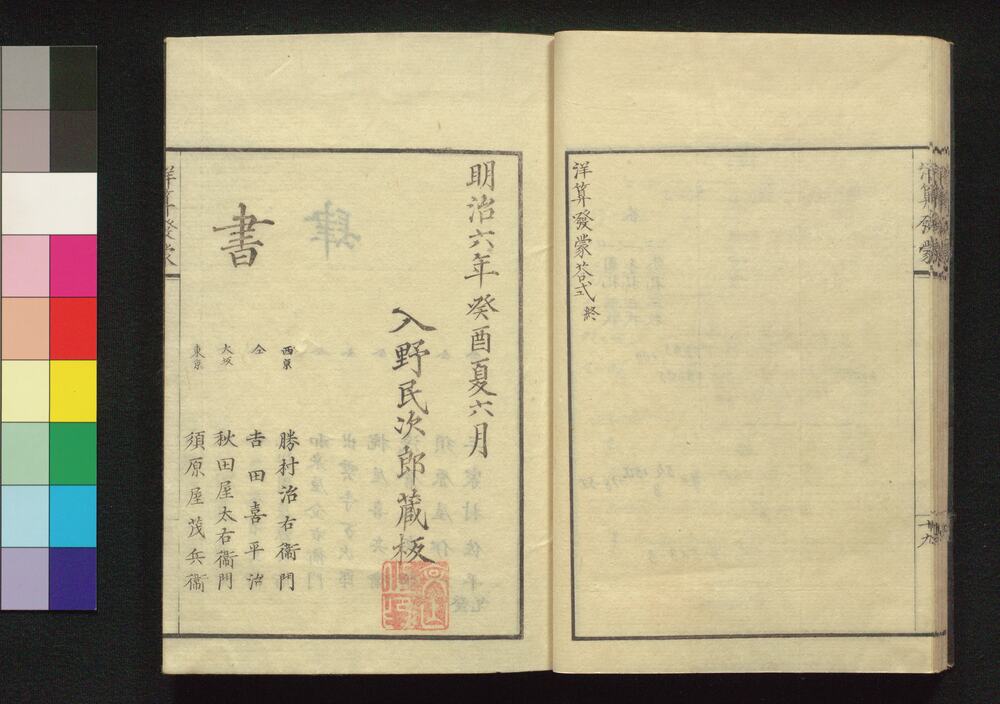 洋算發蒙
十九
洋算發蒙荅式 終
明治六年癸酉夏六月
入野民次郎蔵板
書
西京 勝村治右衞門
仝 吉田喜平治
大坂 秋田屋太右衞門
東京 須原屋茂兵衞
洋算發蒙